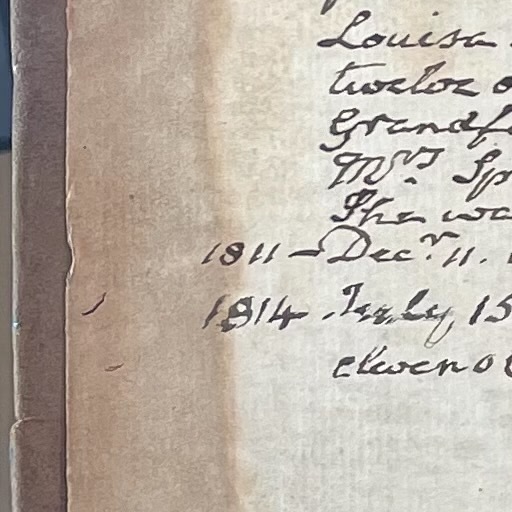 Louisa
twelve o
Grandfa
Mrs. Sp
She wa
1811 - Decr. 11.
1814 - July 15